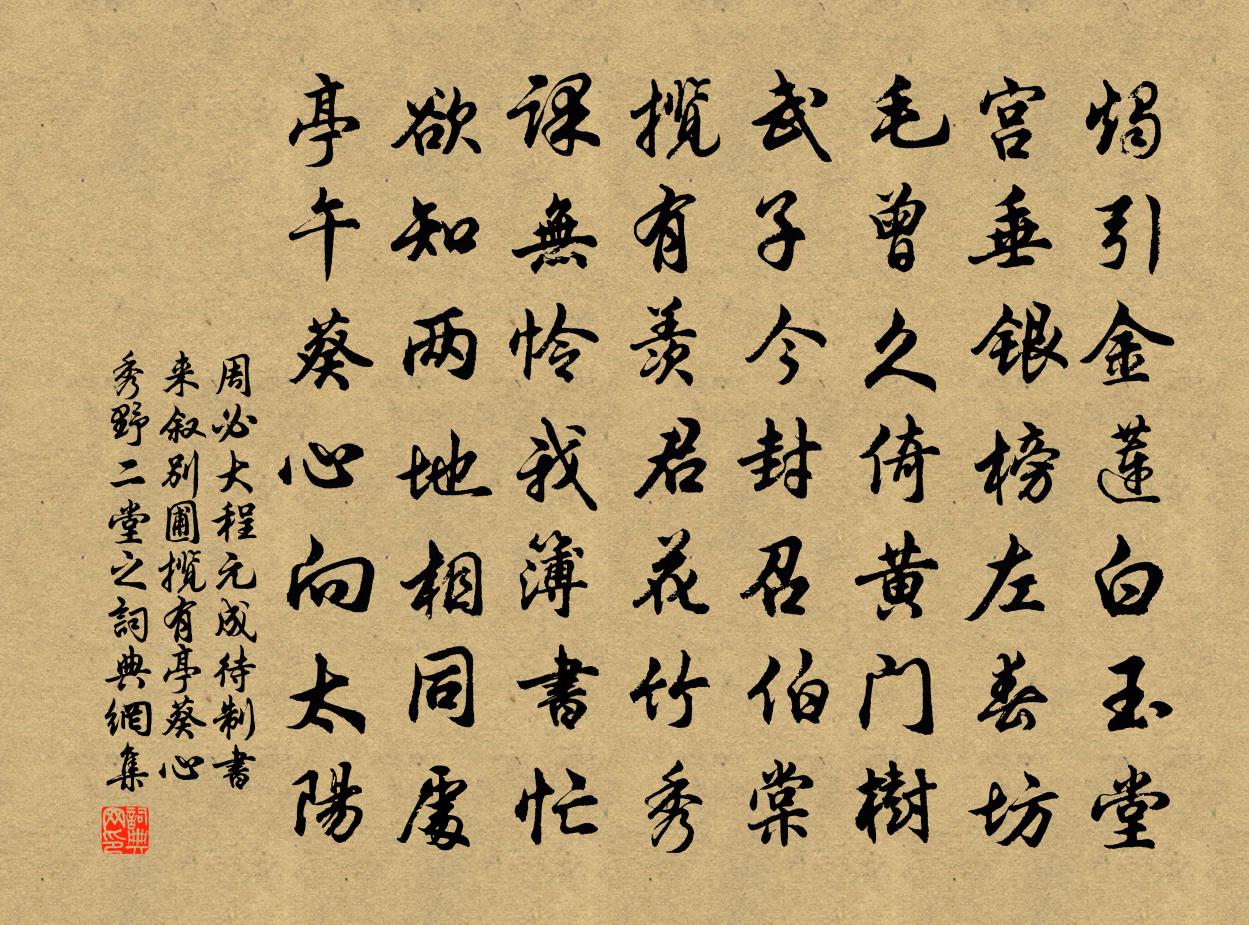 燭引金蓮白玉堂
宫垂銀榜左春坊
毛曾久倚黄门樹
武子今封召伯棠
攬有羨君花竹秀
課無怜我簿書忙
欲知两地相同處
亭午葵心向太陽
周必大程元成待制書
来叙别圃攬有亭葵心
秀野二堂之詞典網集
詞典
网印